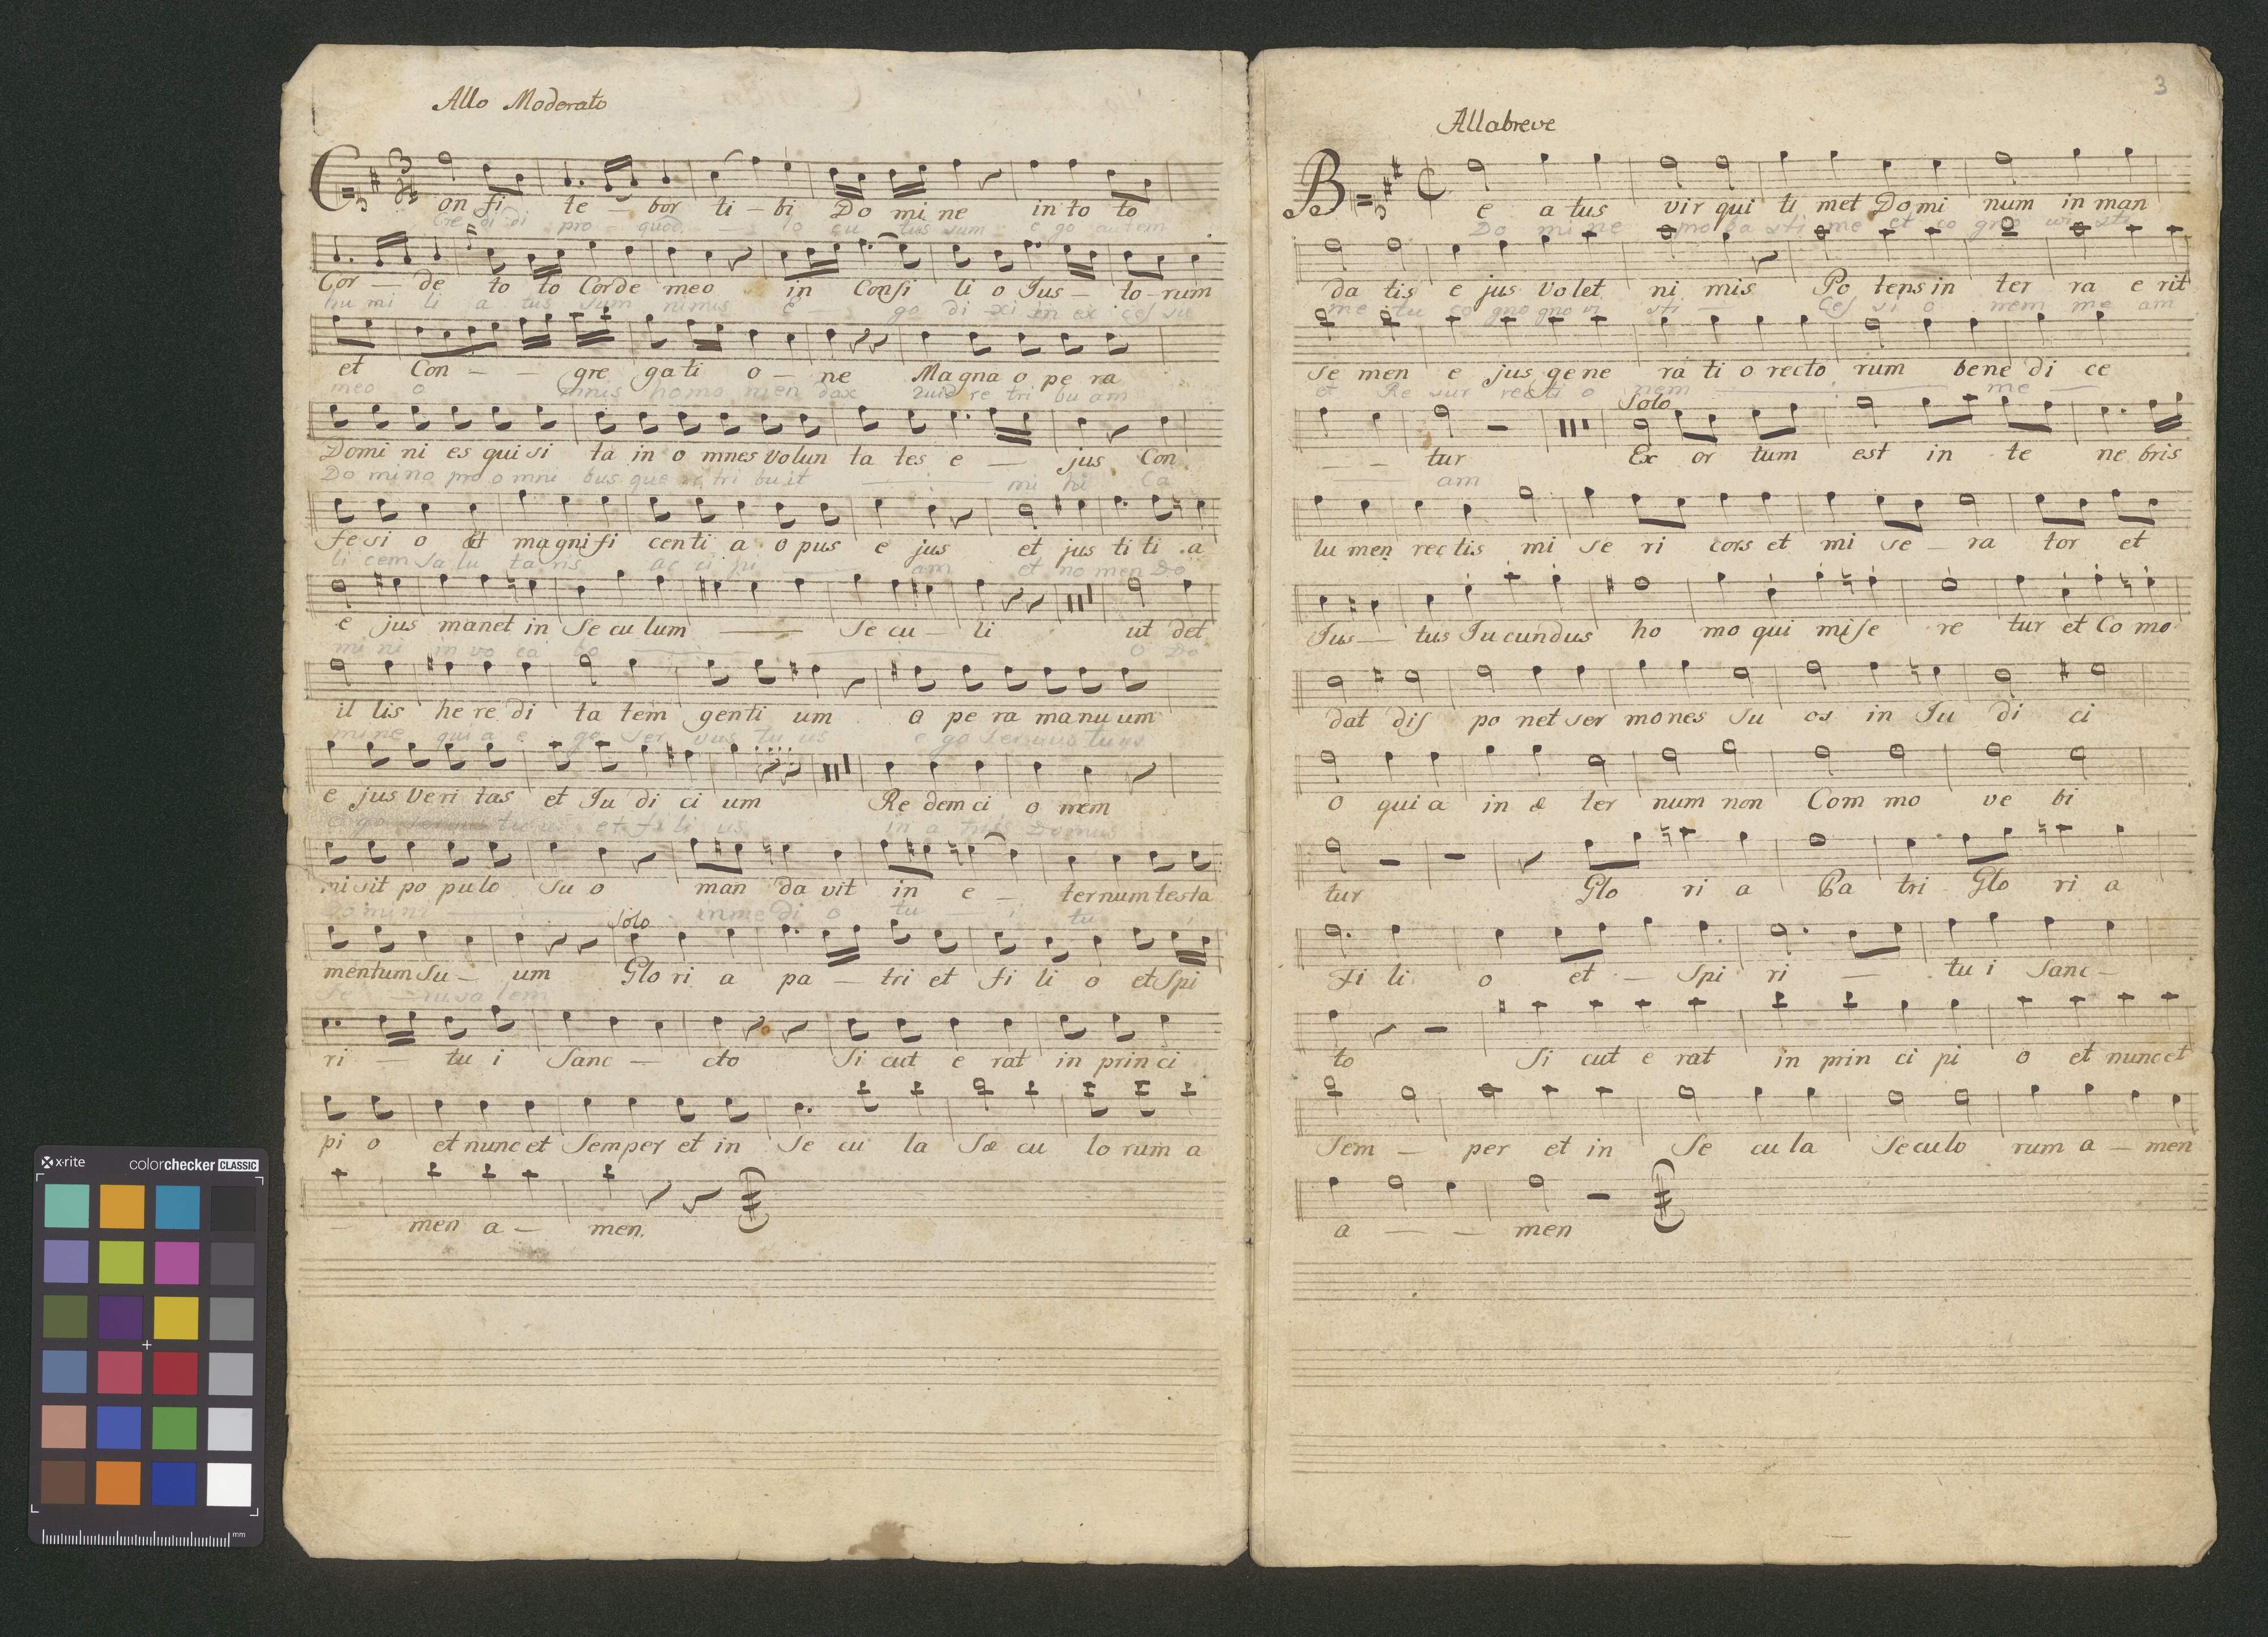 Allo Moderato
Con fi te — bor ti — bi Do mi ne in to to
Cre di di pro — quod — lo cu tus sum e go autem
Cor — de to to Corde meo in Consi li o Jus — to — rum
hu mi li a tus sum nimis E — go di xi in ex ces su
et Con — — gre ga ti o — ne Magna o pe ra
meo o mnis homo men dax quid re tri bu am
Domi ni es qui si ta in o mnes volun ta tes e — jus Con
Do mi no pro o mni bus que re tri bu it mi hi Ca
fe si o et magnifi centi a o pus e jus et jus ti ti a
li cem sa lu ta ris ac ci pi am et no men Do
e jus manet in Se cu lum — Se cu — li ut det
mi ni in vo ca bo O Do
il lis he re di ta tem genti um o pe ra manu um
mine qui a e go ser vus tu us e go servus tuus
e jus Veri tas et Ju di ci um Re dem ci o nem
e go servus tuus et fi li us
mi sit po pulo su o man da vit in e — ternum testa
Domini in me di o tu — i tu — i
Solo
mentum Su — um Glo ri a pa — tri et fi li o et Spi
Je — rusa lem
ri — tu i Sanc — cto Si cut e rat in prin ci
pi o et nunc et Semper et in Se cu la Sæ cu lo rum a
— men a — men.
3
Allabreve
Be a tus vir qui ti met Domi num in man
Do mi ne pro ba sti me et co gno vi sti
da tis e jus volet ni mis Po tens in ter ra e rit
me tu co gno vi sti
Se men e jus gene ra ti o recto rum bene di ce
et Re sur recti o nem — me —
Solo
— — tur Ex or tum est in te ne bris
am
lu men rectis mi se ri cors et mi se — ra tor et
Jus — tus Jucundus ho mo qui mise re tur et Co mo
dat dis po net ser mones su os in Ju di ci
o qui a in æ ter num non Com mo ve bi
tur Glo ri a Pa tri Glo ri a
Fi li o et — Spi ri — tu i Sanc —
to Si cut e rat in prin ci pi o et nunc et
Sem — per et in Se cu la Seculo rum a — men
a — — men
x-rite colorchecker CLASSIC
mm